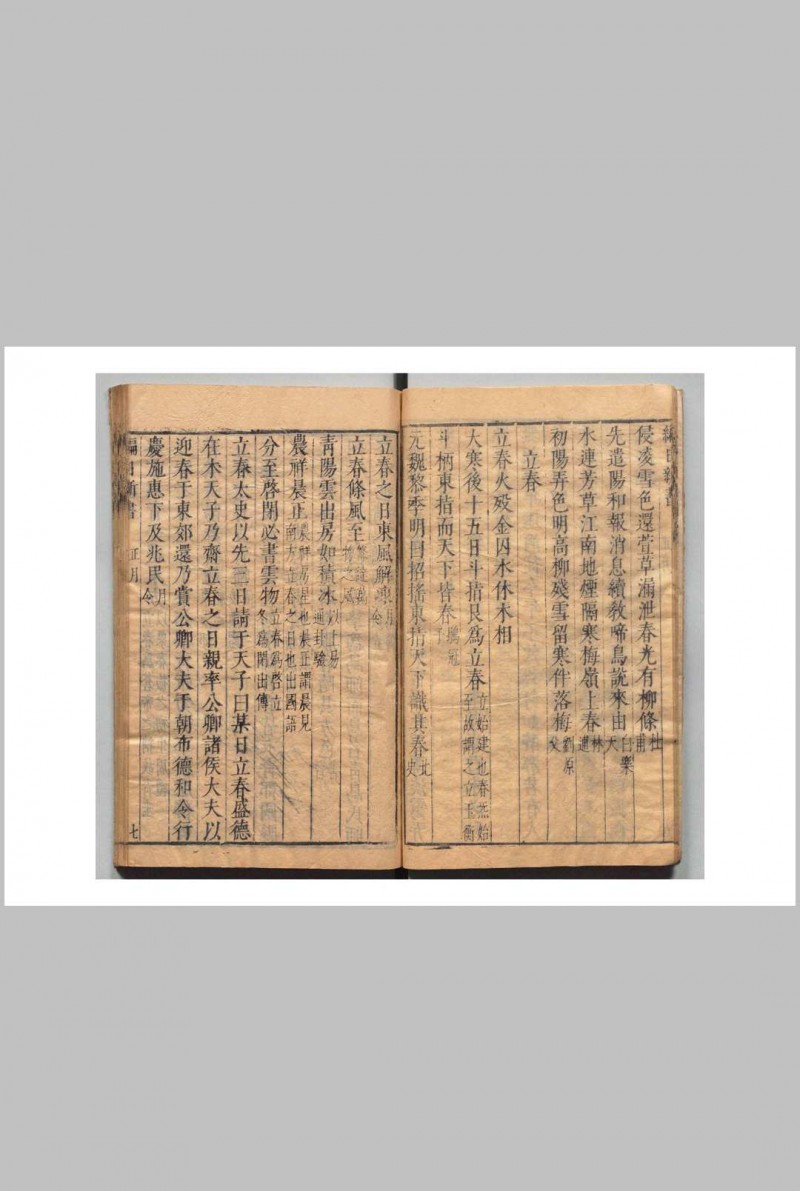 侵凌雪色還萱草漏泄春光有柳條杜甫
先遣陽和報消息續教啼鳥說來由白樂天
水連芳草江南地煙隔寒梅嶺上春林逋
初陽弄色明高柳殘雪留寒伴落梅劉原父
立春
立春火歿金囚水休木相
大寒後十五日斗指艮爲立春立始建也春炁始至故謂之立玉衡
斗柄東指而天下皆春鶡冠
元魏黎季明曰招搖東指天下識其春北史
立春之日東風解凍月令
立春條風至
青陽雲出房如積冰以上易通卦驗
農祥晨正農祥房星也晨正謂晨見南方立春之日也出國語
分至啓閉必書雲物立春爲啓立冬爲閉出傳
立春太史以先三日請于天子曰某日立春盛德
在木天子乃齋立春之日親率公卿諸侯大夫以
迎春于東郊還乃賞公卿大夫于朝布德和令行
慶施惠下及兆民月令
編日新書 正月 七